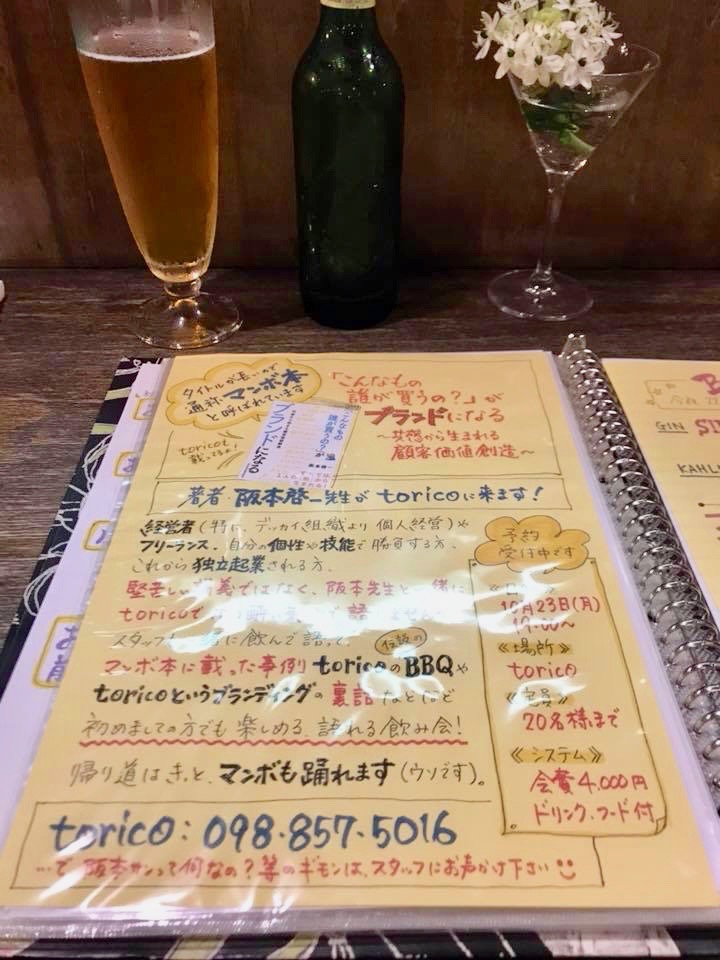 タイトルが長いので
通称マンボ本
と呼ばれています
「こんなもの
誰が買うの?」が
ブランドになる
〜共感から生まれる
顧客価値創造〜
toricoも
載ってるよ!
こんなもの
誰が買うの?が
ブランドになる
阪本啓一
著者 阪本啓一先生がtoricoに来ます!
経営者(特に、デッカイ組織より個人経営)や
フリーランス、自分の個性や技能で勝負する方、
これから独立起業される方、
堅苦しい講義ではなく、阪本先生と一緒に
toricoで
語りません
スタッフも一緒に飲んで語って、
伝説の
マンボ本に載った事例toricoのBBQや
toricoというブランディングの裏話などなど
初めましての方でも楽しめる、語れる飲み会!
帰り道はきっと、マンボも踊れます(ウソです)。
予約
受付中です
《日時》
10月23日(月)
19:00〜
《場所》
torico
《定員》
20名様まで
《システム》
会費4,000円
ドリンク、フード付
torico:098・857・5016
…で阪本サンって何なの?等のギモンは、スタッフにお声かけ下さい
GIN
KAHL